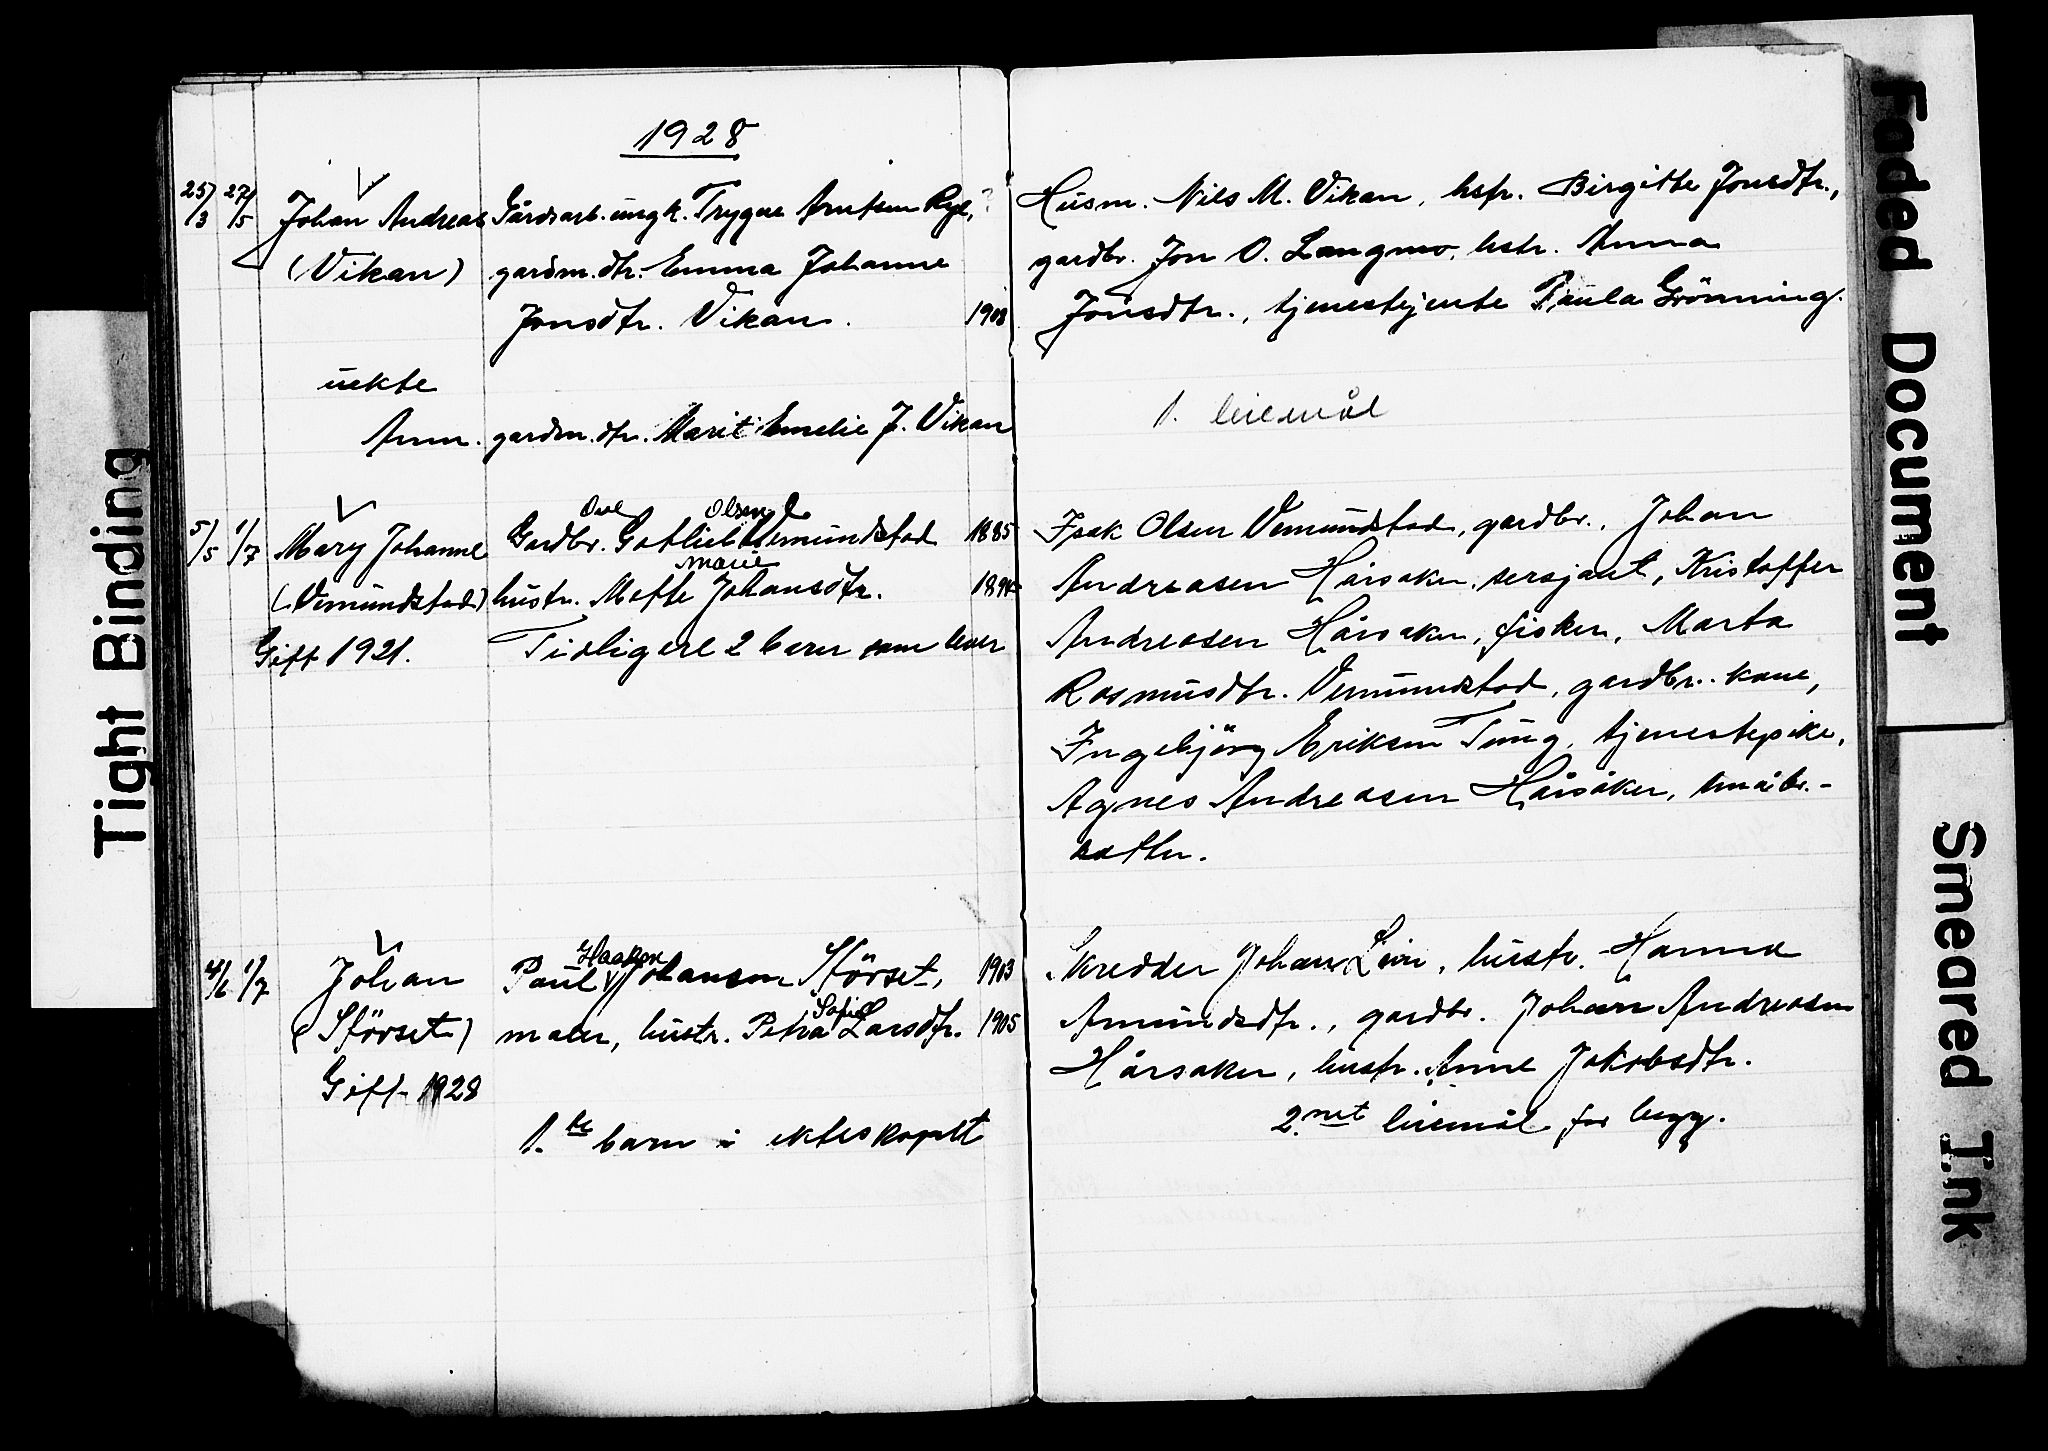 1928
25/3 27/5 Johan Andreas Gårdsarb. ungk. Trygve Arntsen Rye, ?
(Vikan) gardm.dtr. Emma Johanne
Jonsdtr. Vikan. 1908
uekte
Anm. gardm.dtr. Marit Emelie J. Vikan
Ove Olsen
5/5 1/7 Mary Johanne Gardbr. Gotlieb Vemundstad 1885
Marie
(Vemundstad) hustr. Mette Johansdtr. 1894
Gift 1921. Tidligere 2 barn som lever
Haakon
4/6 1/7 Johan Paul Johansen Störset, 1903
Sofie
(Störset) maler, hustr. Petra Larsdtr. 1905
Gift 1928
1.te barn i ekteskapet
Husm. Nils M. Vikan, hstr. Birgitte Jonsdtr.,
gardbr. Jon O. Langmo, hstr. Anna
Jonsdtr., tjenestejente Paula Grönning.
1. leiemål
Isak Olsen Vemundstad, gardbr., Johan
Andreasen Hårsaker, sersjant, Kristoffer
Andreasen Hårsaker, fisker, Marta
Rasmusdtr. Vemundstad, gardbr. kone,
Ingebjörg Eriksen Tung, tjenestepike,
Agnes Andreasen Hårsaker, småbr.-
datter.
Skredder Johan Lien, hustr. Hanna
Amundsdtr., gardbr. Johan Andreasen
Hårsaker, hustr. Anne Jakobsdtr.
2.net leiemål for begg.
Tight Binding
Faded Document
Smeared Ink